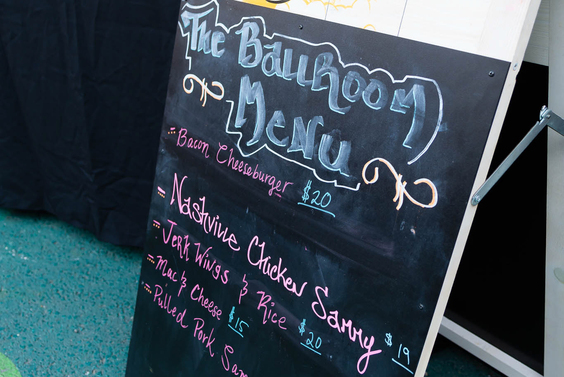 The Ballroom
Menu
Bacon Cheeseburger $20
Nashville Chicken Sammy $19
Jerk Wings & Rice $20
Mac & Cheese $15
Pulled Pork Sam